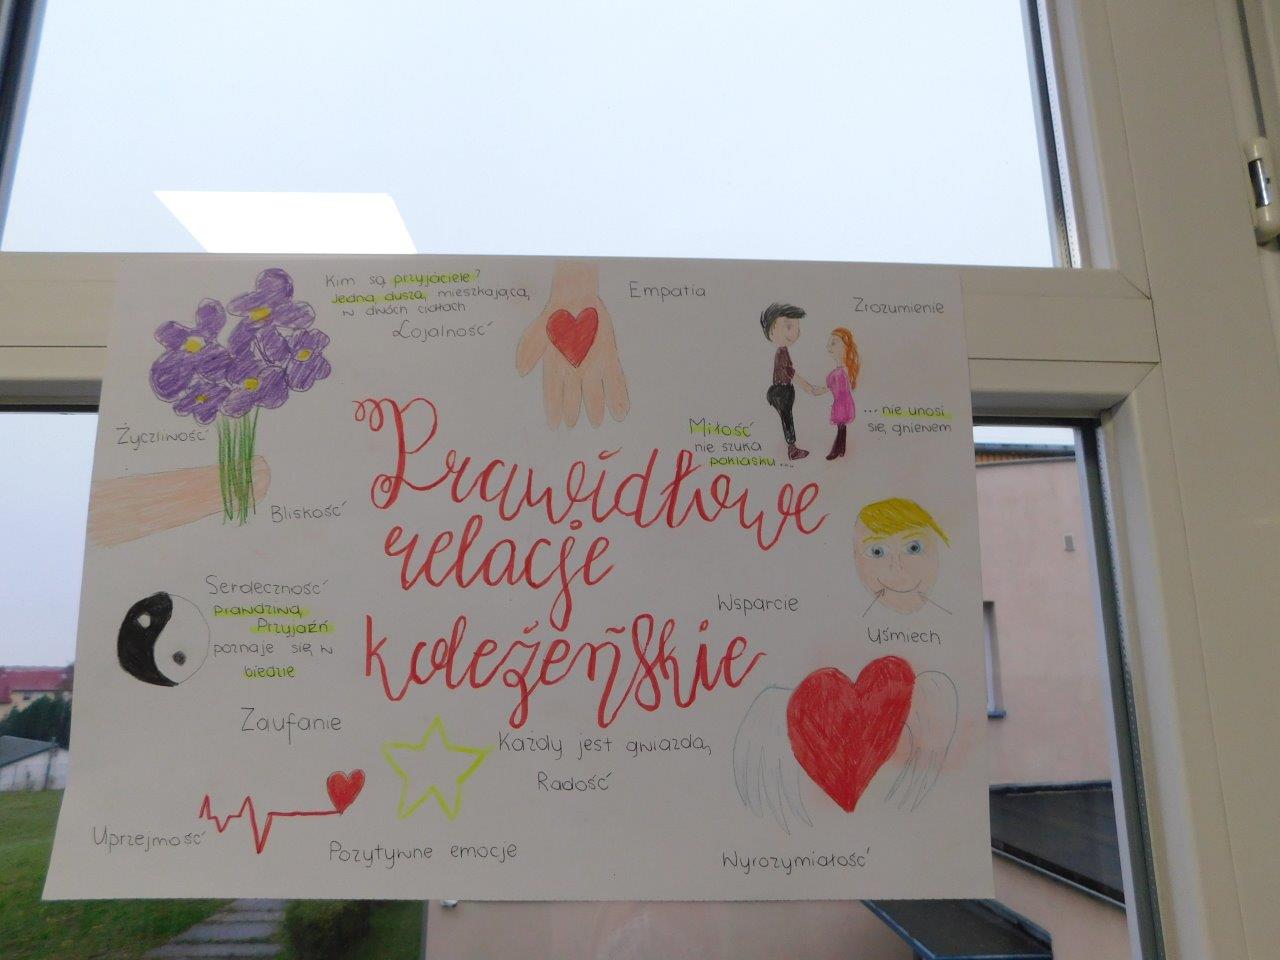 Kim są przyjaciele?
Jedną duszą, mieszkającą
w dwóch ciałach
Lojalność
Empatia
Zrozumienie
Życzliwość
Bliskość
Miłość
nie szuka
poklasku...
...nie unosi
się gniewem
Prawidłowe
relacje
koleżeńskie
Serdeczność
prawdziwą
Przyjaźń
poznaje się w
biedzie
Wsparcie
Uśmiech
Zaufanie
Każdy jest gwiazdą
Radość
Uprzejmość
Pozytywne emocje
Wyrozymiałość